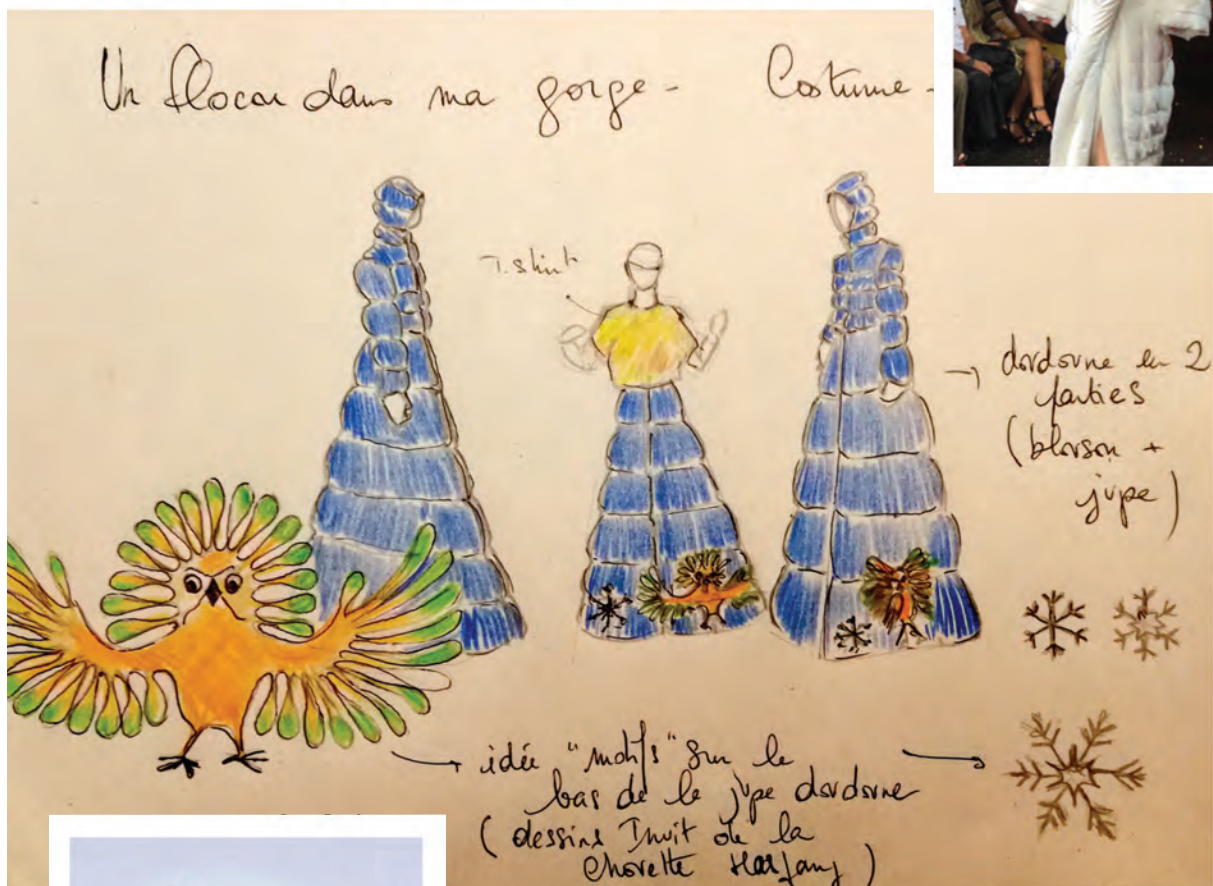 Un flocon dans ma gorge - Costume -
T. shirt
→ doudoune en 2
parties
(blouson +
jupe)
→ idée "motifs" sur le →
bas de la jupe doudoune
(dessins Inuit de la
chouette Harfang)